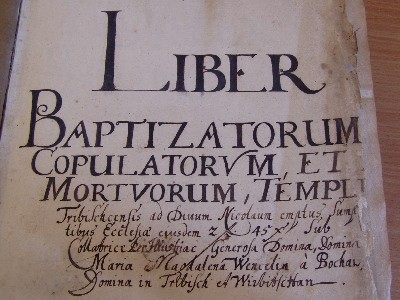 LIBER
BAPTIZATORUM
COPULATORVM, ET
MORTVORUM, TEMPLI
Tribischcensis ad Divum Nicolaum emptus, Sump
tibus Ecclesiæ ejusdem 45 Sub
Collatrice Generosa Domina, Domina
Maria Magdalena Wencelin à Bochau,
Domina in Tribisch et